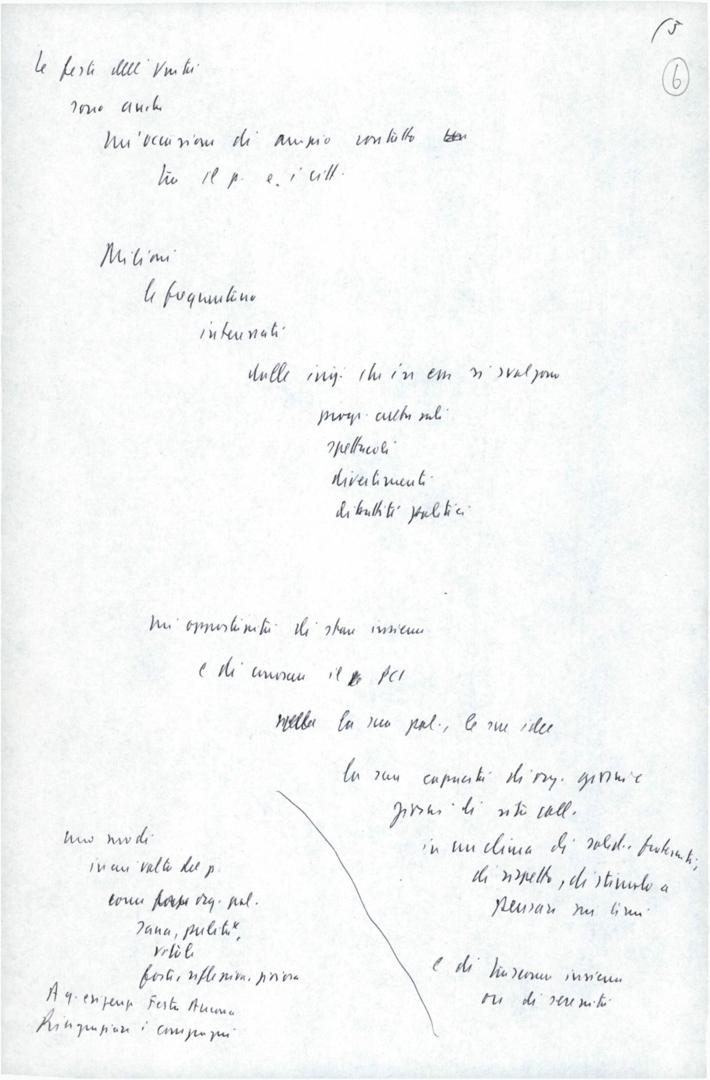 15
6
Le feste dell'Unità
sono anche
un'occasione di ampio contatto
tra il p. e i citt.
Milioni
le frequentano
interessati
dalle iniz. che in esse si svolgono
progr. culturali
spettacoli
divertimenti
dibattiti politici
un'opportunità di stare insieme
e di conoscere il PCI
la sua pol., le sue idee
la sua capacità di org. giorni e
giorni di vita coll.
in un clima di solid., fraternità,
di rispetto, di stimolo a
pensare su temi
e di trascorrere insieme
ore di serenità
uno modi
in cui volto del p.
come org. pol.
sana, pulita,
vitale
festa, riflessione,
A q. esigenza Festa Ancona
Ringraziare i compagni